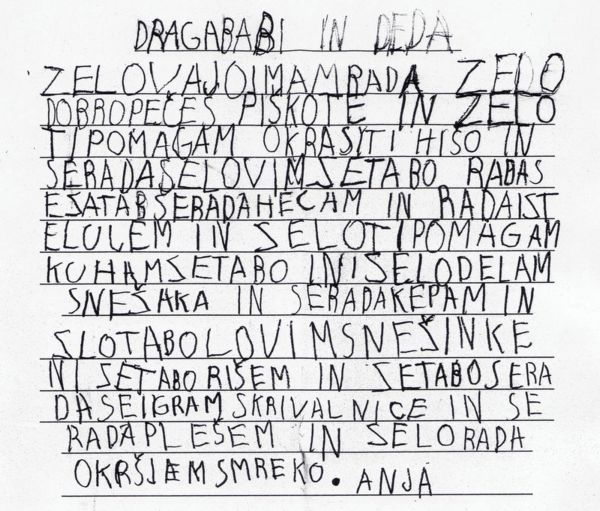 DRAGABABI IN DEDA
ZELOVAJOIMAMRADA ZELO
DOBROPEČEŠ PIŠKOTE IN ZELO
TIPOMAGAM OKRASITI HIŠO IN
SERADASELOVIMSETABO RABAS
ESATABSERADAHECAM IN RADAIST
ELULEM IN SELOTIPOMAGAM
KUHAMSETABO INISELODELAM
SNEŠAKA IN SERADAKEPAM IN
SLOTABOLOVIMSNEŠINKE
NI SETABORIŠEM IN SETABOSERA
DASEIGRAMSKRIVALNICE IN SE
RADAPLEŠEM IN SELORADA
OKRŠJEMSMREKO. ANJA